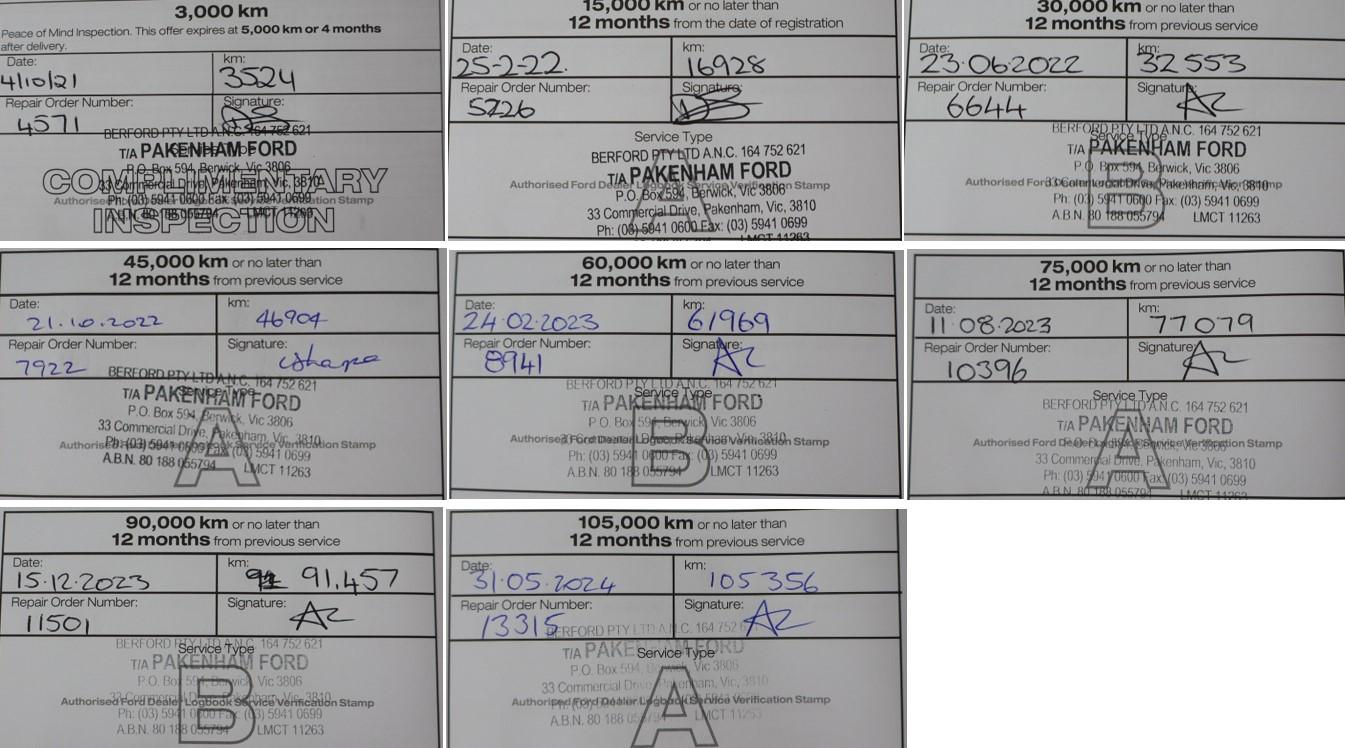 3,000 km
Peace of Mind Inspection. This offer expires at 5,000 km or 4 months
after delivery.
Date: km:
4/10/21 3524
Repair Order Number: Signature:
4571
BERFORD PTY LTD A.N.C. 164 752 621
T/A PAKENHAM FORD
P.O. Box 594, Berwick, Vic 3806
COMPLIMENTARY
33 Commercial Drive, Pakenham, Vic, 3810
Authorised Ford Dealer Logbook Service Verification Stamp
Ph: (03) 5941 0600 Fax: (03) 5941 0699
A.B.N. 80 188 055794 LMCT 11263
INSPECTION
15,000 km or no later than
12 months from the date of registration
Date: km:
25-2-22. 16928
Repair Order Number: Signature:
5726
Service Type
BERFORD PTY LTD A.N.C. 164 752 621
T/A PAKENHAM FORD
Authorised Ford Dealer Logbook Service Verification Stamp
P.O. Box 594, Berwick, Vic 3806
A
33 Commercial Drive, Pakenham, Vic, 3810
Ph: (03) 5941 0600 Fax: (03) 5941 0699
LMCT 11263
30,000 km or no later than
12 months from previous service
Date: km:
23.06.2022 32553
Repair Order Number: Signature:
6644 AZ
BERFORD PTY LTD A.N.C. 164 752 621
Service Type
T/A PAKENHAM FORD
P.O. Box 594, Berwick, Vic 3806
B
33 Commercial Drive, Pakenham, Vic, 3810
Authorised Ford Dealer Logbook Service Verification Stamp
Ph: (03) 5941 0600 Fax: (03) 5941 0699
A.B.N. 80 188 055794 LMCT 11263
45,000 km or no later than
12 months from previous service
Date: km:
21.10.2022 46904
Repair Order Number: Signature:
7922
BERFORD PTY LTD A.N.C. 164 752 621
Service Type
T/A PAKENHAM FORD
P.O. Box 594, Berwick, Vic 3806
33 Commercial Drive, Pakenham, Vic, 3810
A
Authorised Ford Dealer Logbook Service Verification Stamp
Ph: (03) 5941 0600 Fax: (03) 5941 0699
A.B.N. 80 188 055794 LMCT 11263
60,000 km or no later than
12 months from previous service
Date: km:
24.02.2023 61969
Repair Order Number: Signature:
8941 AZ
BERFORD PTY LTD A.N.C. 164 752 621
Service Type
T/A PAKENHAM FORD
P.O. Box 594, Berwick, Vic 3806
B
33 Commercial Drive, Pakenham, Vic, 3810
Authorised Ford Dealer Logbook Service Verification Stamp
Ph: (03) 5941 0600 Fax: (03) 5941 0699
A.B.N. 80 188 055794 LMCT 11263
75,000 km or no later than
12 months from previous service
Date: km:
11.08.2023 77079
Repair Order Number: Signature:
10396 AZ
Service Type
BERFORD PTY LTD A.N.C. 164 752 621
T/A PAKENHAM FORD
A
P.O. Box 594, Berwick, Vic 3806
Authorised Ford Dealer Logbook Service Verification Stamp
33 Commercial Drive, Pakenham, Vic, 3810
Ph: (03) 5941 0600 Fax: (03) 5941 0699
A.B.N. 80 188 055794 LMCT 11263
90,000 km or no later than
12 months from previous service
Date: km:
15.12.2023 91.457
Repair Order Number: Signature:
11501 AZ
BERFORD PTY LTD A.N.C. 164 752 621
Service Type
T/A PAKENHAM FORD
P.O. Box 594, Berwick, Vic 3806
B
33 Commercial Drive, Pakenham, Vic, 3810
Authorised Ford Dealer Logbook Service Verification Stamp
Ph: (03) 5941 0600 Fax: (03) 5941 0699
A.B.N. 80 188 055794 LMCT 11263
105,000 km or no later than
12 months from previous service
Date: km:
31.05.2024 105356
Repair Order Number: Signature:
13315 AZ
BERFORD PTY LTD A.N.C. 164 752 621
T/A PAKENHAM FORD
Service Type
P.O. Box 594, Berwick, Vic 3806
33 Commercial Drive, Pakenham, Vic, 3810
A
Authorised Ford Dealer Logbook Service Verification Stamp
A.B.N. 80 188 055794 LMCT 11263